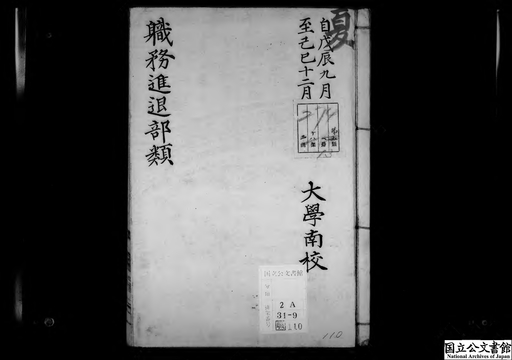 夏
自戊辰九月
至己巳十二月
大學南校
職務進退部類
国立公文書館
2 A
31-9
110
110
国立公文書館
National Archives of Japan